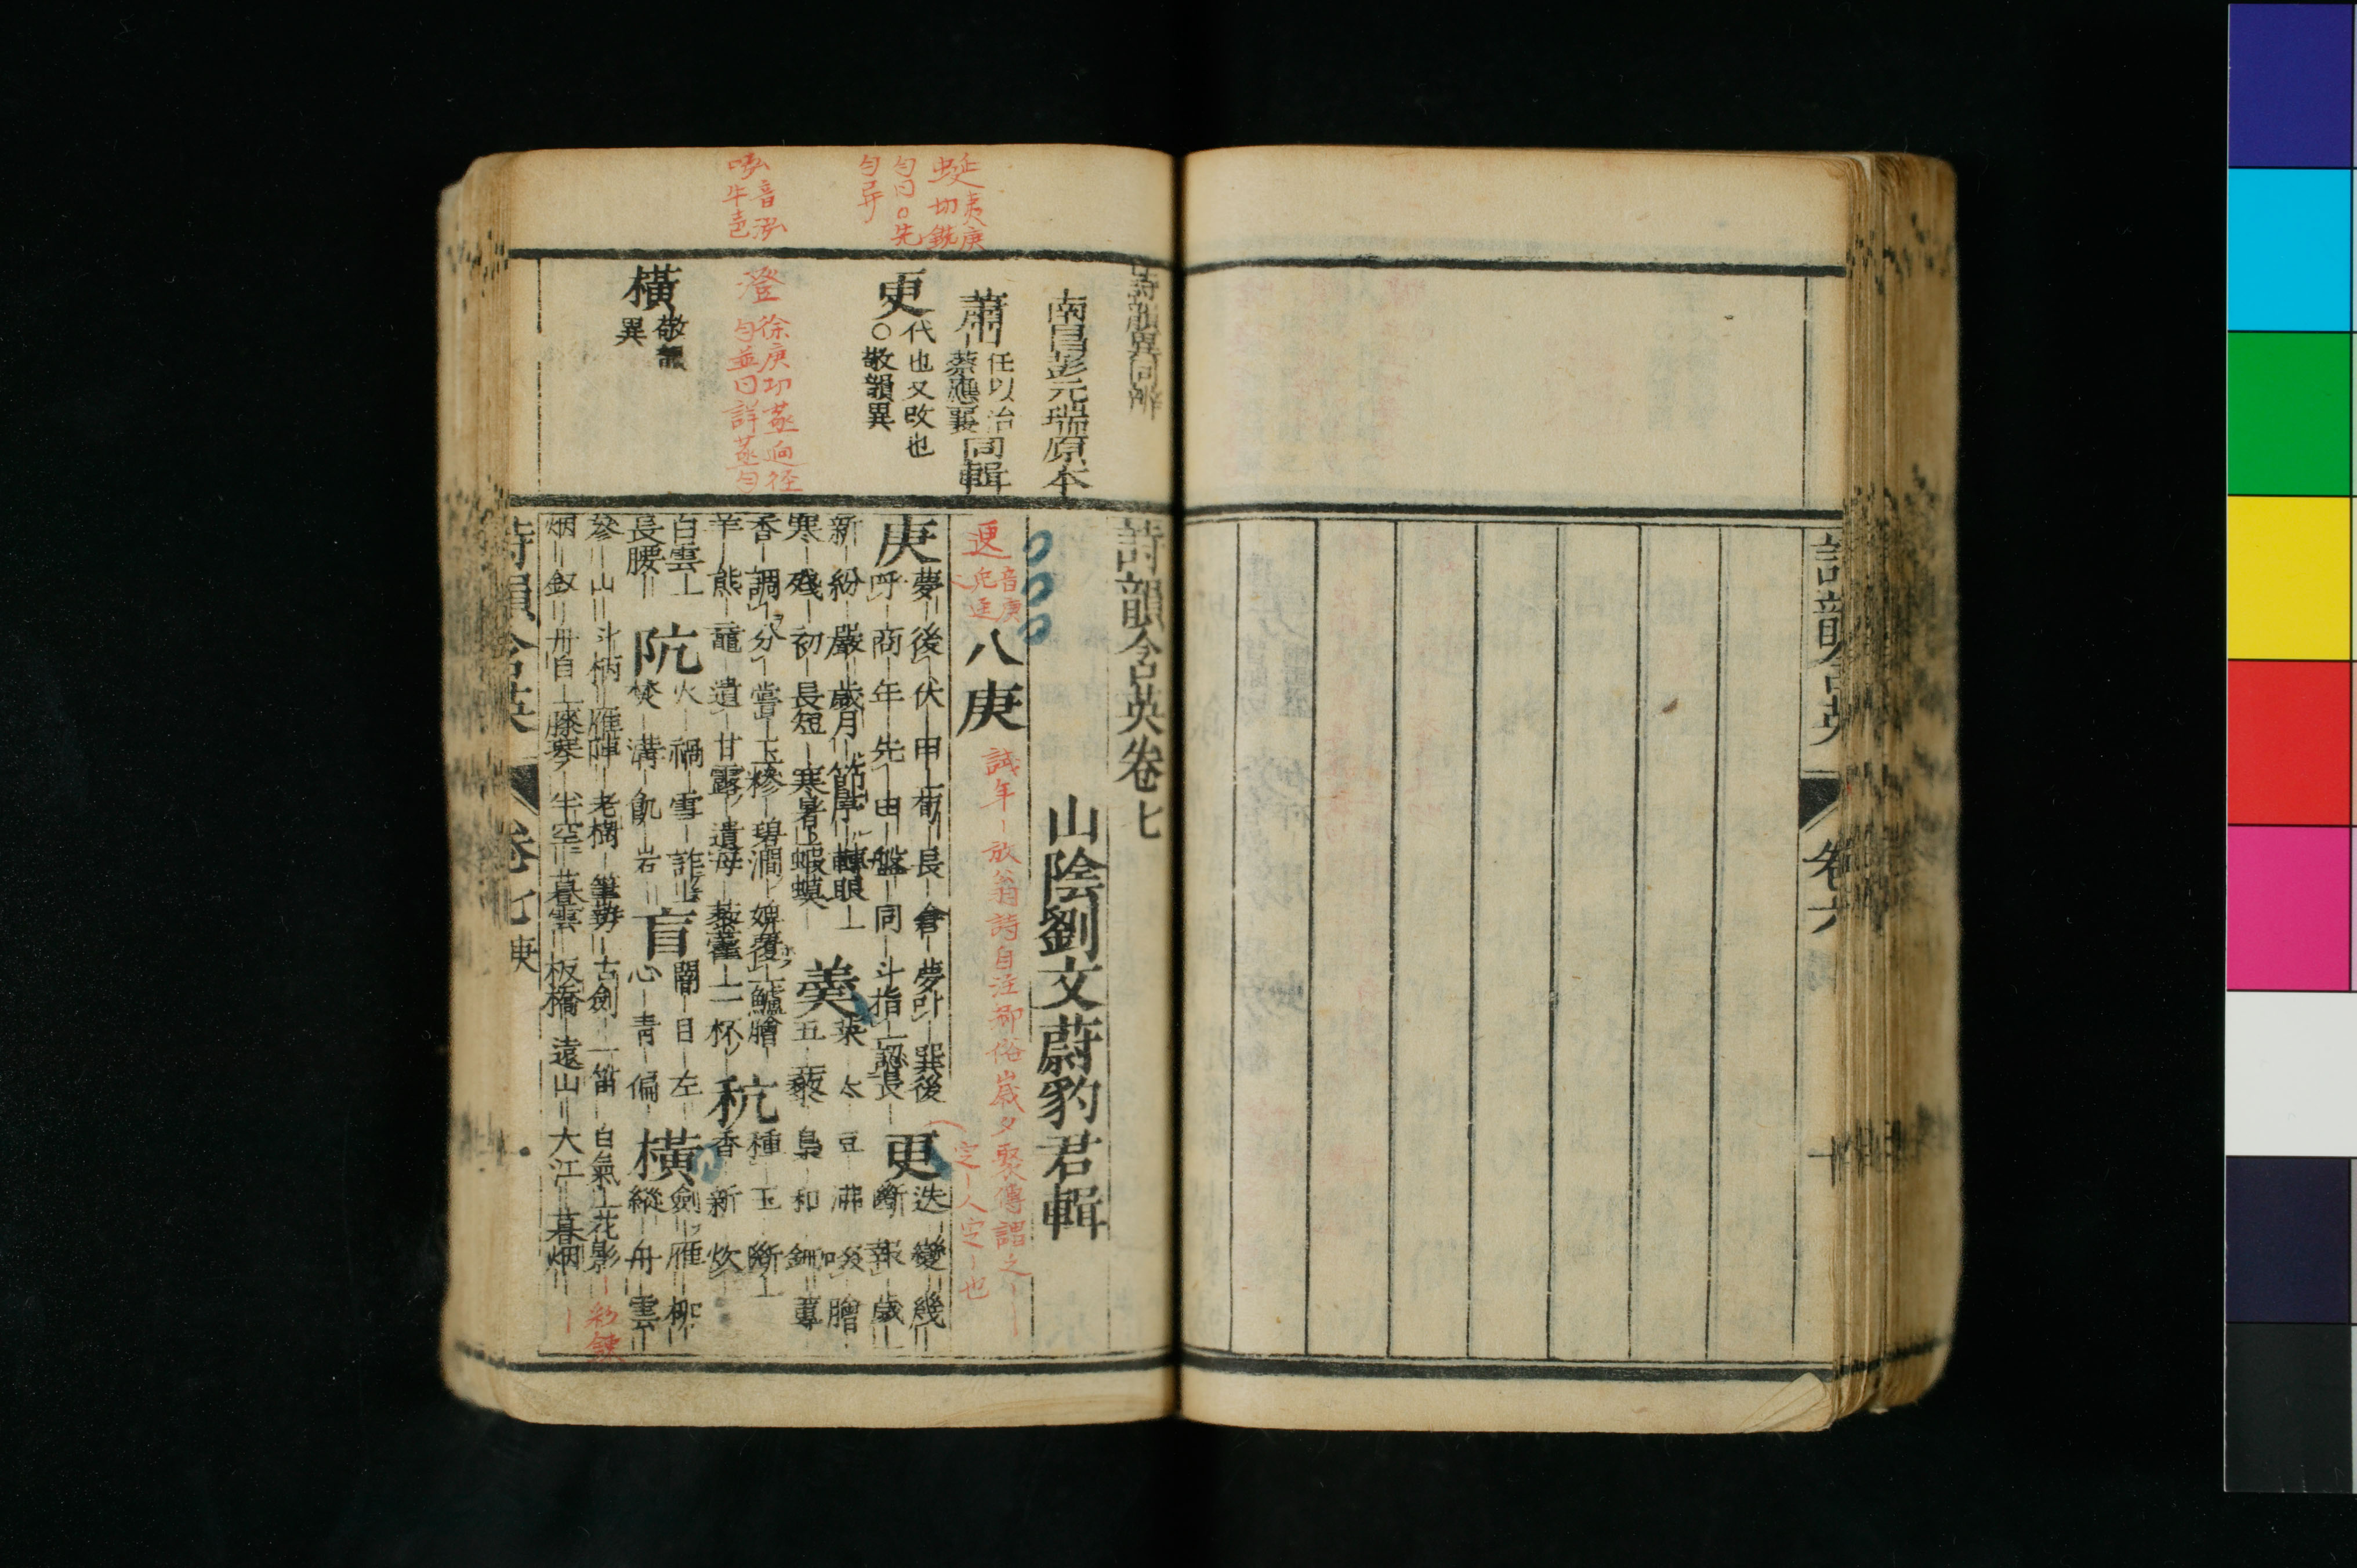 詩韻含英
卷六
詩韻異同辨
南昌彭元瑞原本
蕭 任以治
蔡應襄 同輯
更 代也又改也
○敬韻異
澄 徐庚切蒸迥径
勻並同詳蒸勻
橫 敬韻
異
蜓 夷庚
切銑
勻同○先
勻异
音泓
牛
詩韻含英卷七
山陰劉文蔚豹君輯
八庚
音庚
誠年-放翁詩自注鄉俗歲夕聚傳謂之--
定-人定-也
庚 夢- 後- 伏- 申- 荀- 長- 倉- 夢卜- 巽後-
呼- 商- 年- 先- 由- 盤- 同- 斗指- 認長-
更 迭- 變- 幾-
斷- 報- 歲-
新- 紛- 嚴- 歲月- 節序- 轉眼-
寒- 殘- 初- 長短- 寒暑- 蝦蟆-
羮 菜- 太- 豆- 沸- 啜- 膾-
五- 藜- 梟- 和- 鉶- 蓴-
香- 調- 分- 嘗- 玉糝- 碧澗- 婢覆- 鱸膾-
羊- 熊- 龍- 遺- 甘露- 遺母- 藜藿- 一杯-
秔 種- 玉- 斷-
香- 新- 炊-
白雲-
長腰-
阬 火- 禍- 雪- 詐-
焚- 溝- 飢- 岩-
盲 闇- 目- 左-
心- 青- 偏-
橫 劍- 雁- 柳-
縱- 舟- 雲-
參- 山- 斗柄- 雁陣- 老樹- 筆勢- 古劍- 一笛- 白氣- 花影-
烟- 釵- 舟自- 藤寒- 半空- 暮雲- 板橋- 遠山- 大江- 暮烟-
詩韻含英
卷七 庚